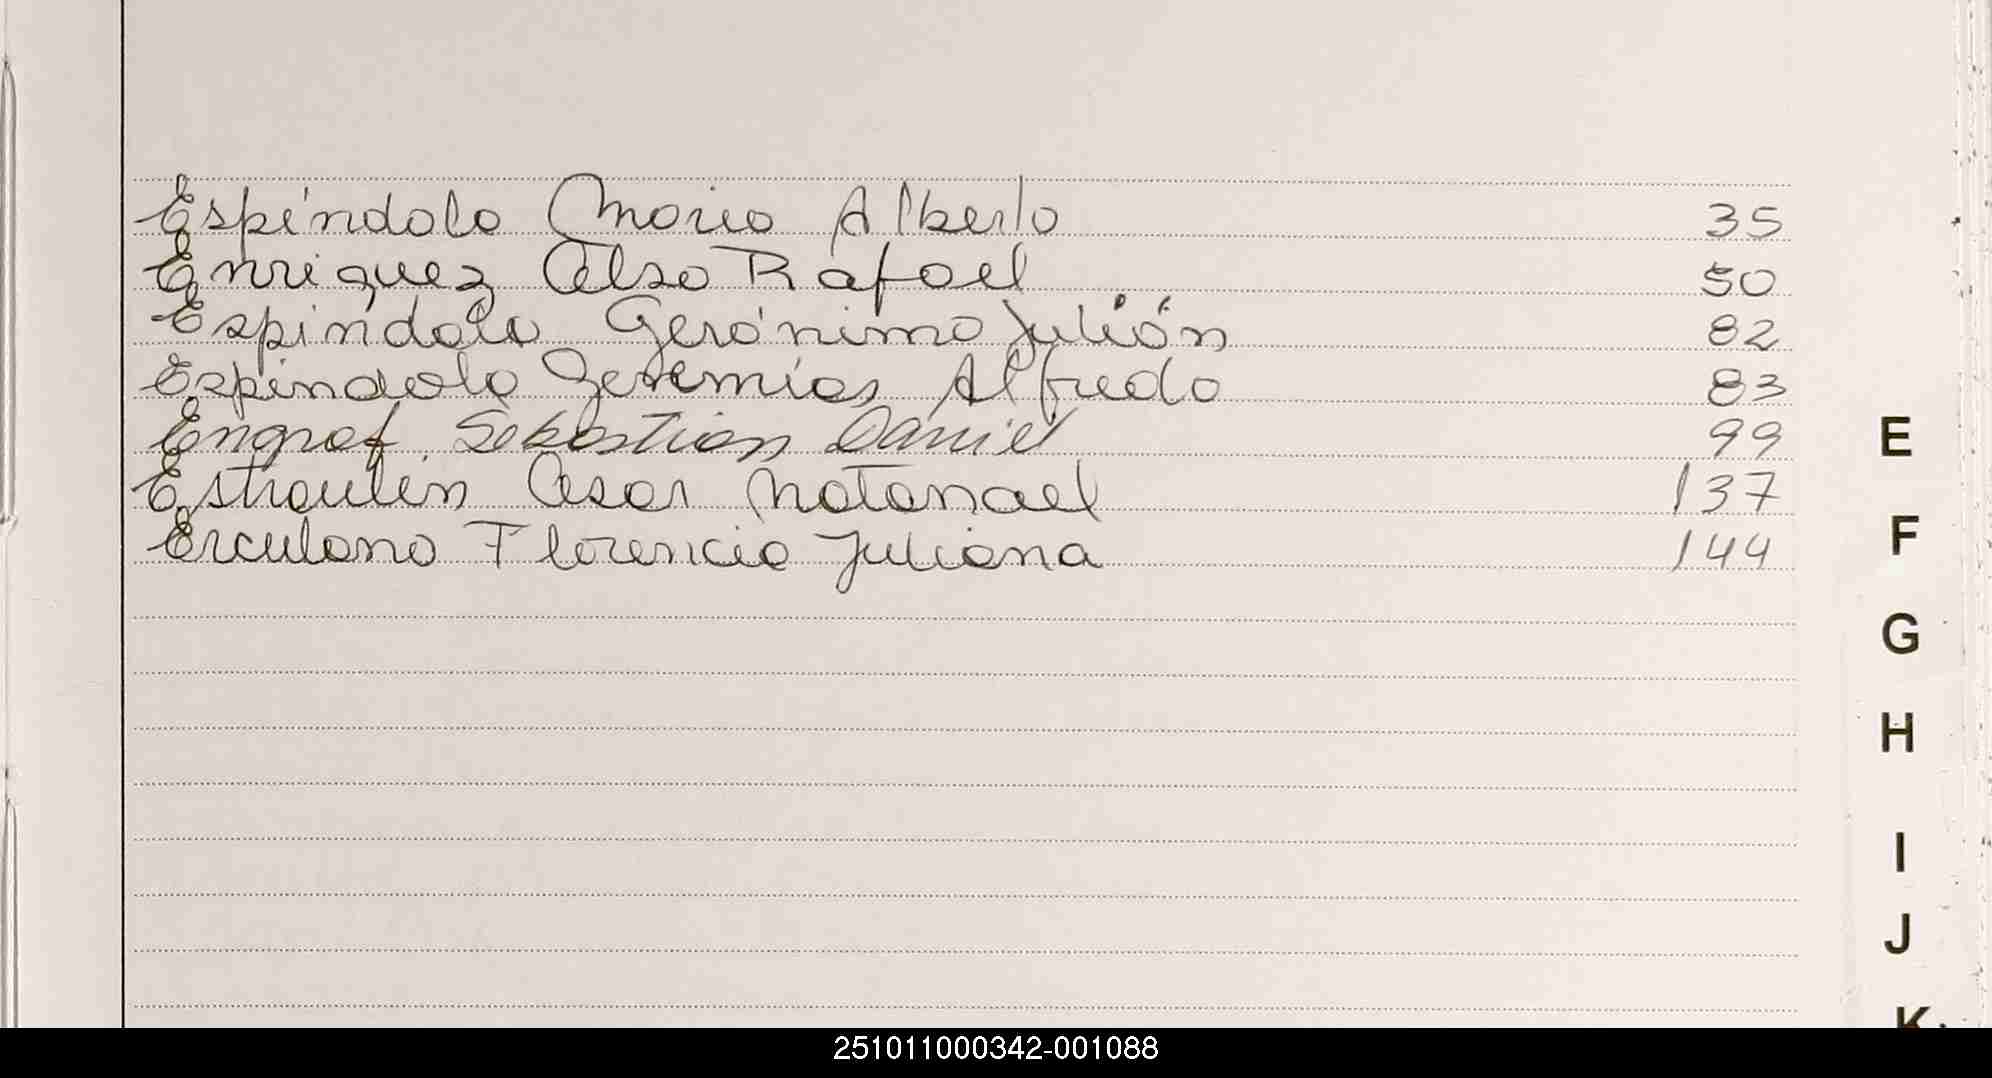 Espíndola Mario Alberto 35
Enriquez Celso Rafael 50
Espíndola Gerónimo Julián 82
Espindola Geremías Alfredo 83
Engraf Sebastian Daniel 99
E
Estraulin Cesar Natanael 137
Erculano Florencia Juliana 144
F
G
H
I
J
K
251011000342-001088